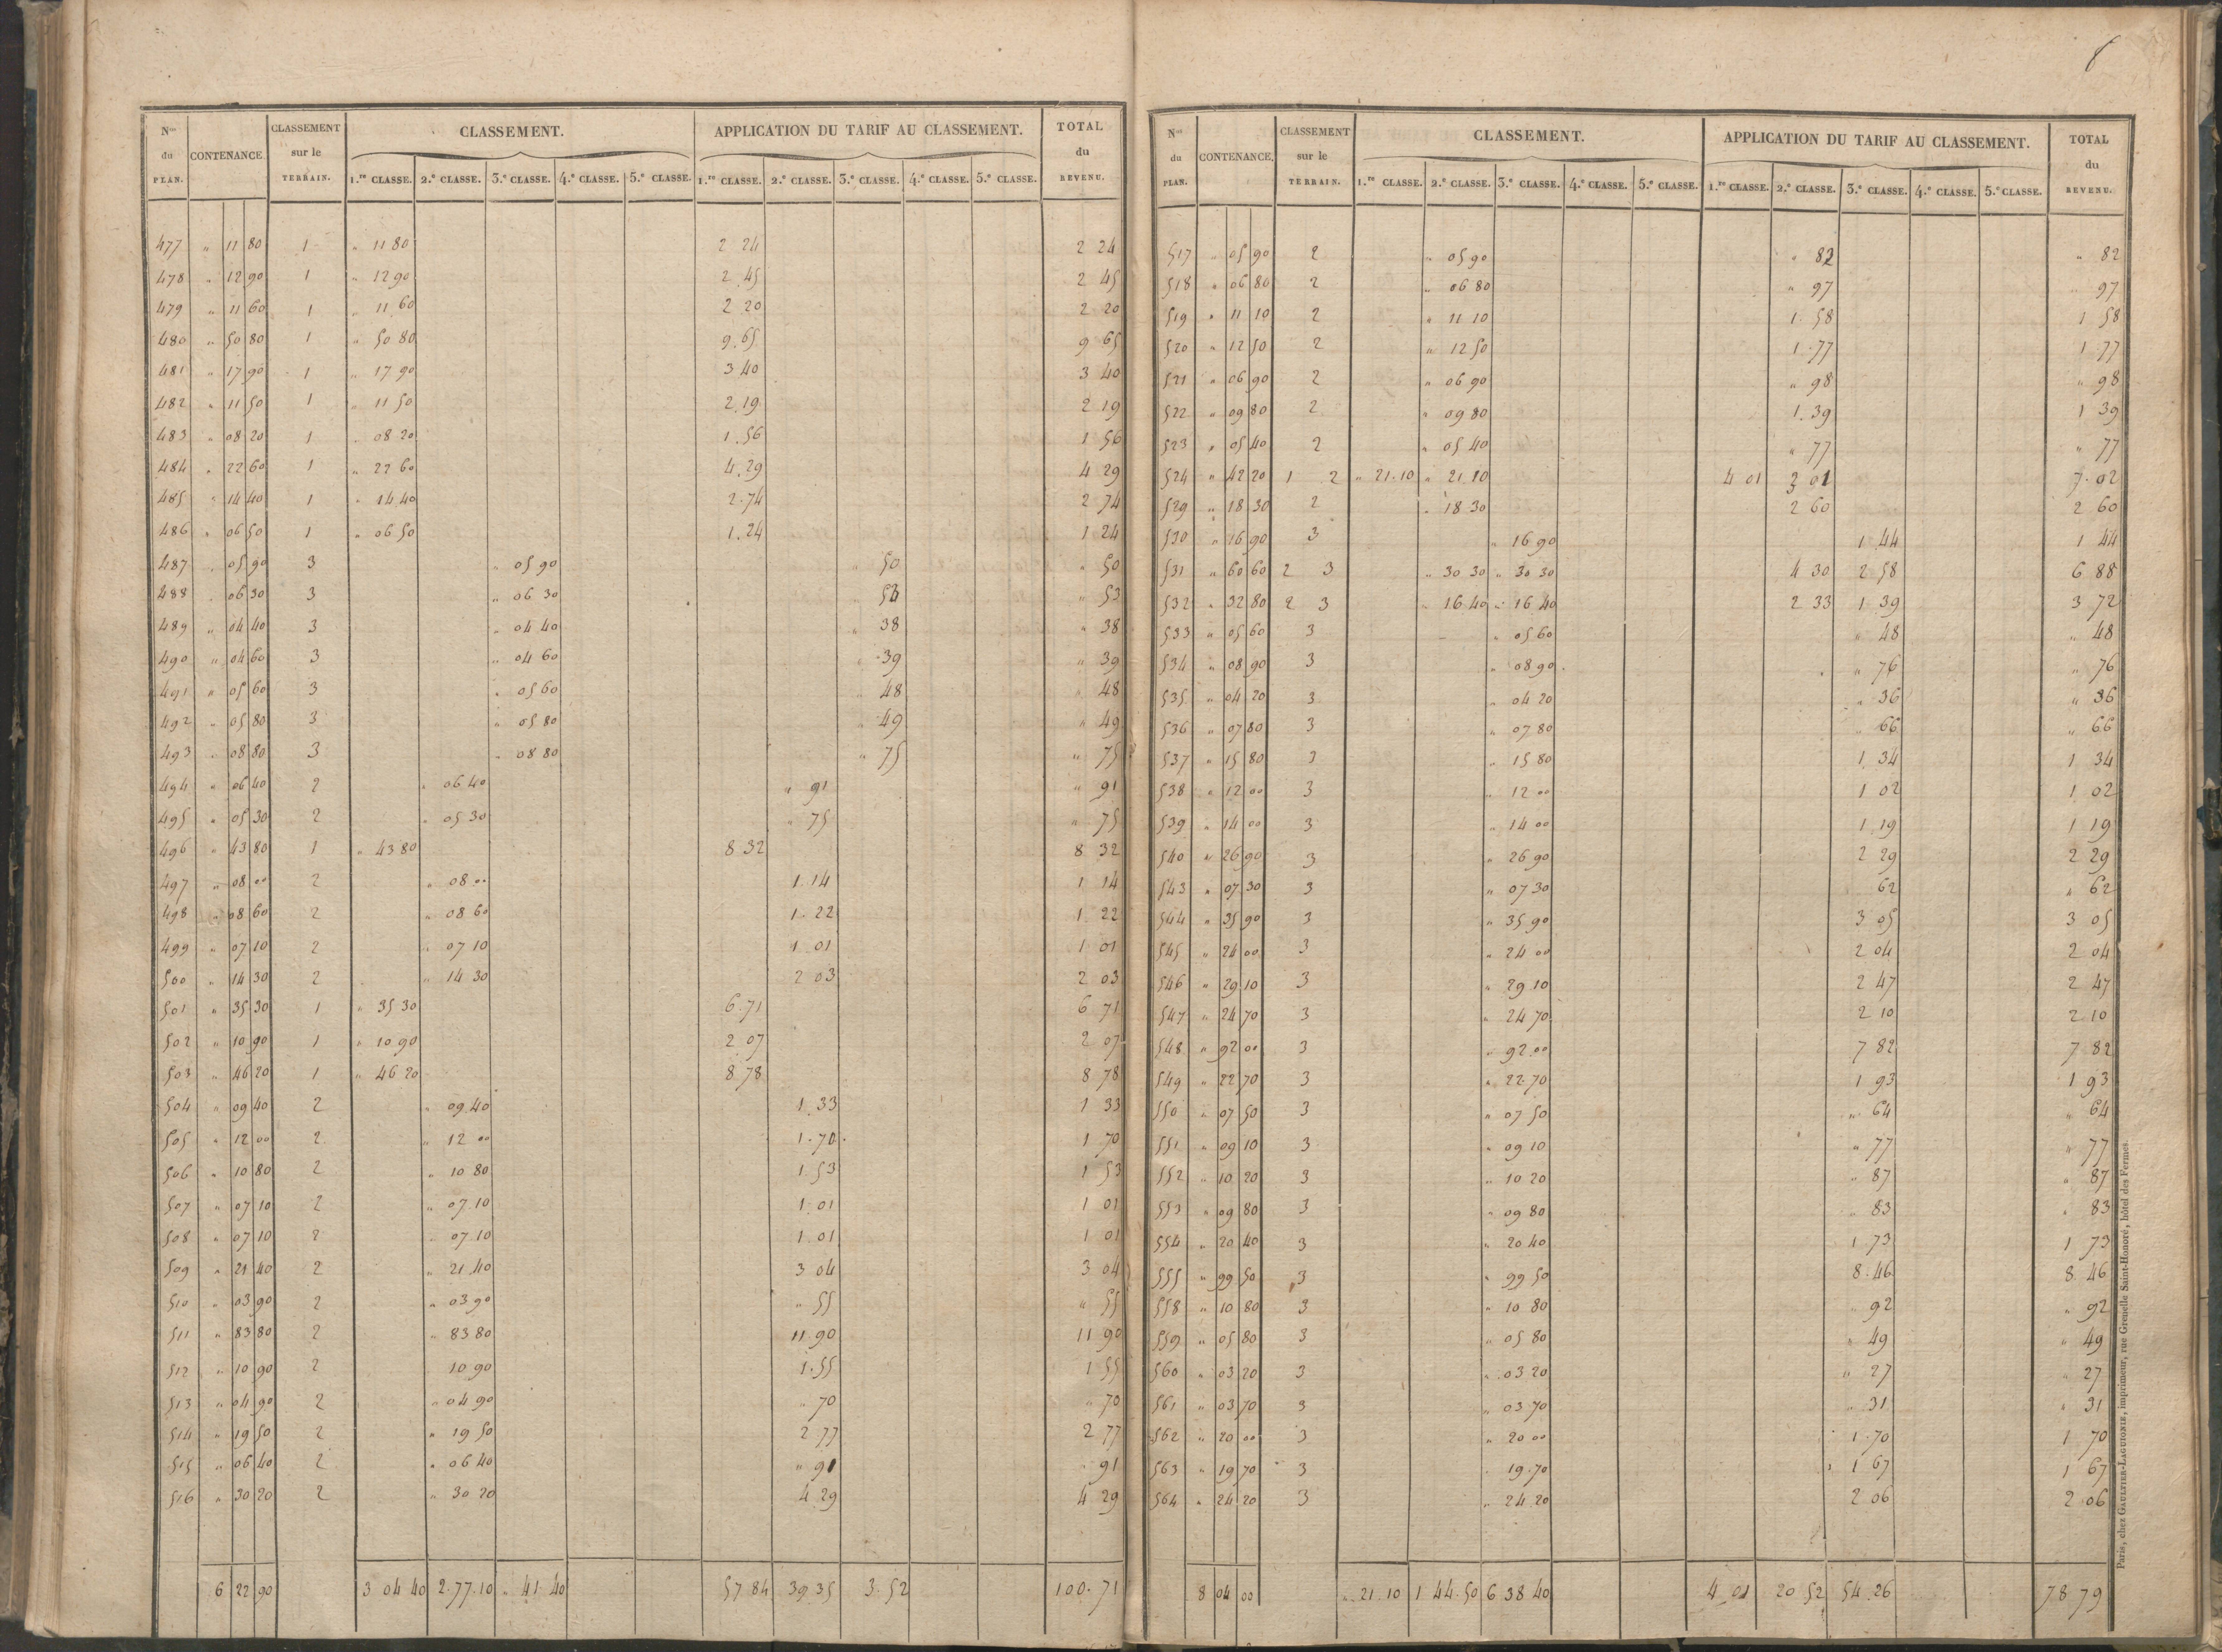 8
N.os du PLAN. CONTENANCE. CLASSEMENT sur le TERRAIN. CLASSEMENT. APPLICATION DU TARIF AU CLASSEMENT. TOTAL du REVENU.
1.re CLASSE. 2.e CLASSE. 3.e CLASSE. 4.e CLASSE. 5.e CLASSE. 1.re CLASSE. 2.e CLASSE. 3.e CLASSE. 4.e CLASSE. 5.e CLASSE.
477 " 11 80 1 " 11 80 2 24 2 24
478 " 12 90 1 " 12 90 2.45 2 45
479 " 11 60 1 " 11 60 2 20 2 20
480 " 50 80 1 " 50 80 9.65 9 65
481 " 17 90 1 " 17 90 3 40 3 40
482 " 11 50 1 " 11 50 2.19 2 19
483 " 08 20 1 " 08 20 1.56 1 56
484 " 22 60 1 " 22 60 4.29 4 29
485 " 14 40 1 " 14 40 2.74 2 74
486 " 06 50 1 " 06 50 1.24 1 24
487 " 05 90 3 " 05 90 " 50 " 50
488 " 06 30 3 " 06 30 " 53 " 53
489 " 04 40 3 " 04 40 " 38 " 38
490 " 04 60 3 " 04 60 " 39 " 39
491 " 05 60 3 " 05 60 " 48 " 48
492 " 05 80 3 " 05 80 " 49 " 49
493 " 08 80 3 " 08 80 " 75 " 75
494 " 06 40 2 " 06 40 " 91 " 91
495 " 05 30 2 " 05 30 " 75 " 75
496 " 43 80 1 " 43 80 8 32 8 32
497 " 08 00 2 " 08 00 1.14 1 14
498 " 08 60 2 " 08 60 1.22 1 22
499 " 07 10 2 " 07 10 1 01 1 01
500 " 14 30 2 " 14 30 2 03 2 03
501 " 35 30 1 " 35 30 6.71 6 71
502 " 10 90 1 " 10 90 2 07 2 07
503 " 46 20 1 " 46 20 8 78 8 78
504 " 09 40 2 " 09 40 1.33 1 33
505 " 12 00 2 " 12 00 1.70 1 70
506 " 10 80 2 " 10 80 1.53 1 53
507 " 07 10 2 " 07 10 1.01 1 01
508 " 07 10 2 " 07 10 1.01 1 01
509 " 21 40 2 " 21 40 3 04 3 04
510 " 03 90 2 " 03 90 " 55 " 55
511 " 83 80 2 " 83 80 11 90 11 90
512 " 10 90 2 " 10 90 1.55 1 55
513 " 04 90 2 " 04 90 " 70 " 70
514 " 19 50 2 " 19 50 2 77 2 77
515 " 06 40 2 " 06 40 " 91 " 91
516 " 30 20 2 " 30 20 4 29 4 29
6 22 90 3 04 40 2.77.10 " 41 40 57 84 39 35 3.52 100.71
N.os du PLAN. CONTENANCE. CLASSEMENT sur le TERRAIN. CLASSEMENT. APPLICATION DU TARIF AU CLASSEMENT. TOTAL du REVENU.
1.re CLASSE. 2.e CLASSE. 3.e CLASSE. 4.e CLASSE. 5.e CLASSE. 1.re CLASSE. 2.e CLASSE. 3.e CLASSE. 4.e CLASSE. 5.e CLASSE.
517 " 05 90 2 " 05 90 " 82 " 82
518 " 06 80 2 " 06 80 " 97 " 97
519 " 11 10 2 " 11 10 1.58 1 58
520 " 12 50 2 " 12 50 1.77 1 77
521 " 06 90 2 " 06 90 " 98 " 98
522 " 09 80 2 " 09 80 1.39 1 39
523 " 05 40 2 " 05 40 " 77 " 77
524 " 42 20 1 2 " 21.10 " 21.10 4 01 3 01 7.02
529 " 18 30 2 " 18 30 2 60 2 60
530 " 16 90 3 " 16 90 1 44 1 44
531 " 60 60 2 3 " 30 30 " 30 30 4 30 2 58 6 88
532 " 32 80 2 3 " 16 40 " 16 40 2 33 1 39 3 72
533 " 05 60 3 " 05 60 " 48 " 48
534 " 08 90 3 " 08 90 " 76 " 76
535 " 04 20 3 " 04 20 " 36 " 36
536 " 07 80 3 " 07 80 " 66 " 66
537 " 15 80 3 " 15 80 1 34 1 34
538 " 12 00 3 " 12 00 1 02 1 02
539 " 14 00 3 " 14 00 1.19 1 19
540 " 26 90 3 " 26 90 2 29 2 29
543 " 07 30 3 " 07 30 62 " 62
544 " 35 90 3 " 35 90 3 05 3 05
545 " 24 00 3 " 24 00 2 04 2 04
546 " 29 10 3 " 29 10 2 47 2 47
547 " 24 70 3 " 24 70 2 10 2 10
548 " 92 00 3 " 92 00 7 82 7 82
549 " 22 70 3 " 22 70 1 93 1 93
550 " 07 50 3 " 07 50 " 64 " 64
551 " 09 10 3 " 09 10 " 77 " 77
552 " 10 20 3 " 10 20 " 87 " 87
553 " 09 80 3 " 09 80 " 83 " 83
554 " 20 40 3 " 20 40 1 73 1 73
555 " 99 50 3 " 99 50 8.46 8 46
558 " 10 80 3 " 10 80 " 92 " 92
559 " 05 80 3 " 05 80 " 49 " 49
560 " 03 20 3 " 03 20 " 27 " 27
561 " 03 70 3 " 03 70 " 31 " 31
562 " 20 00 3 " 20 00 1.70 1 70
563 " 19 70 3 " 19.70 1 67 1 67
564 " 24 20 3 " 24 20 2 06 2.06
8 04 00 " 21.10 1 44.50 6 38 40 4 01 20 52 54.26 78 79
Paris, chez GAULTIER-LAGUIONIE, imprimeur, rue Grenelle Saint-Honoré, hôtel des Fermes.